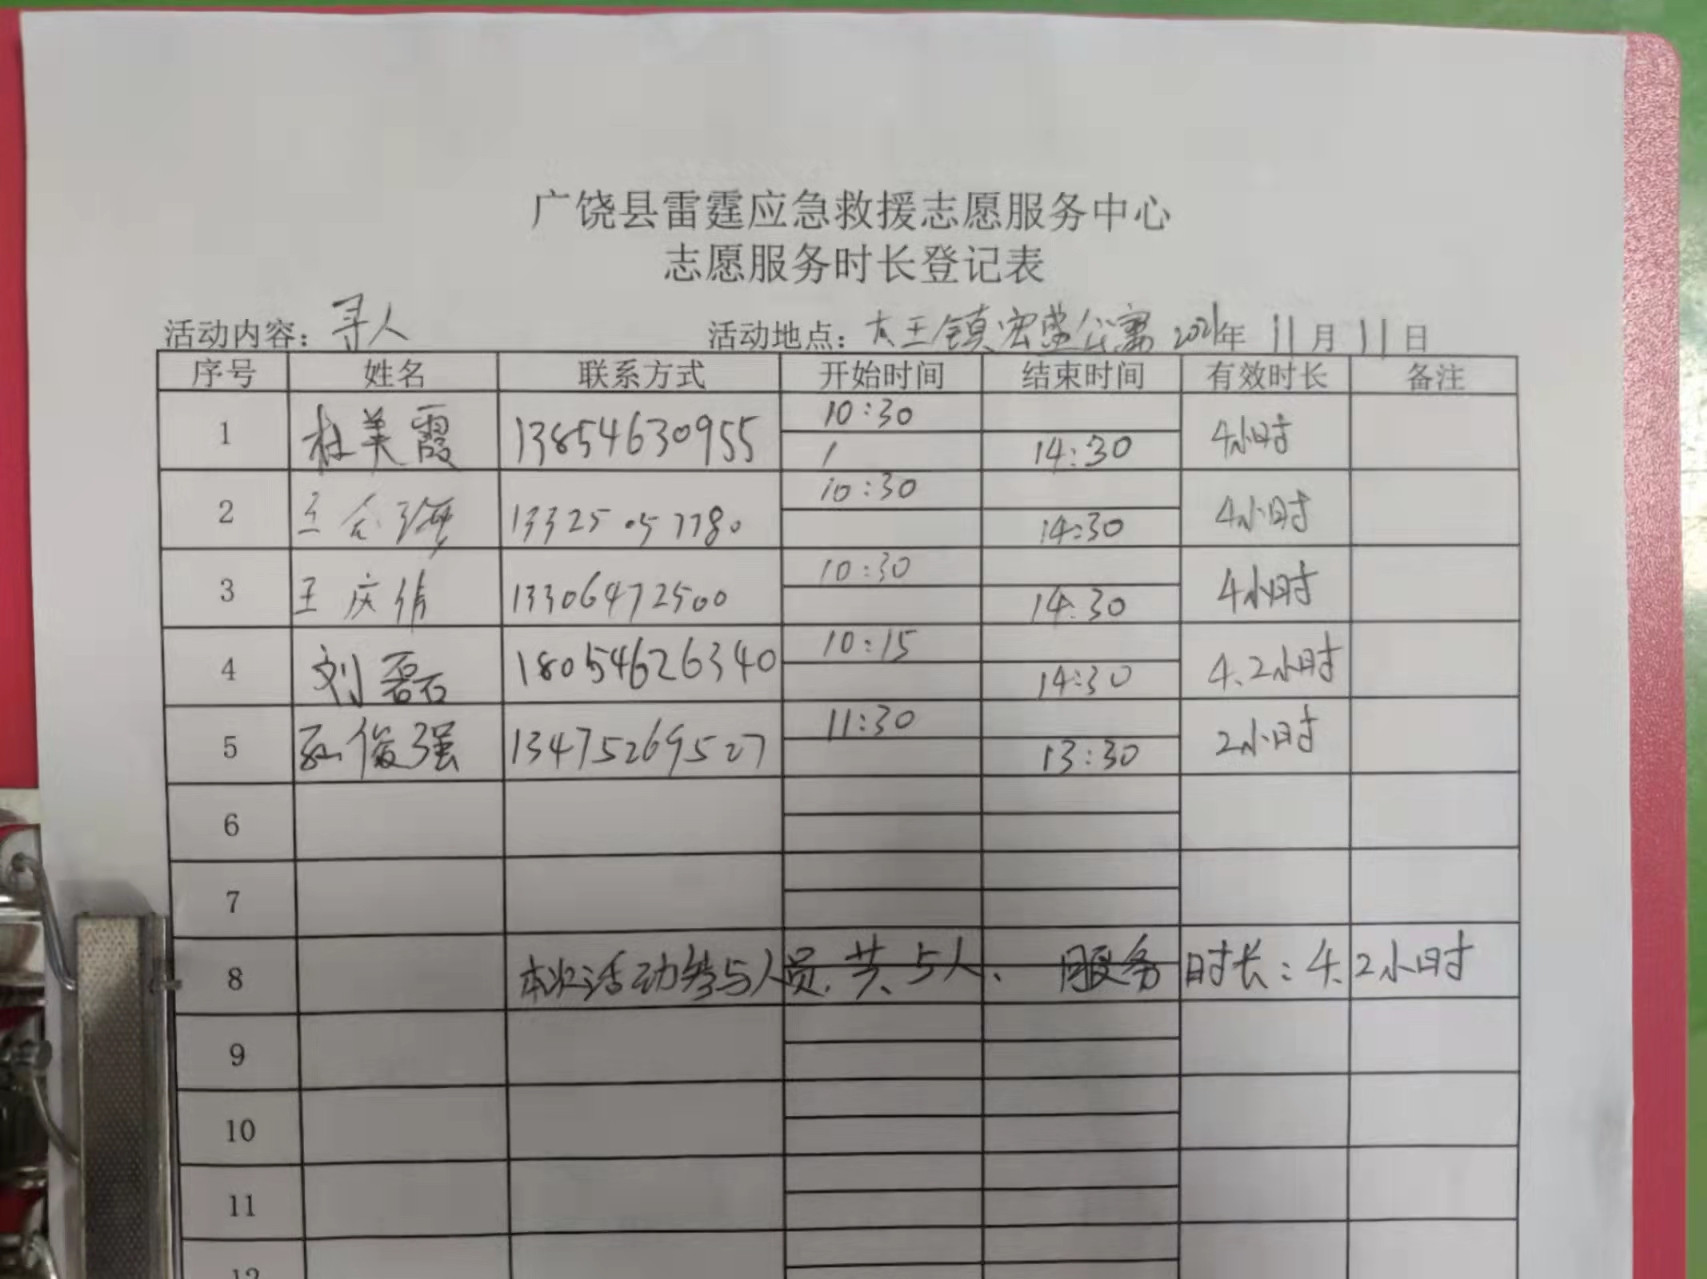 广饶县雷霆应急救援志愿服务中心
志愿服务时长登记表
活动内容：寻人 活动地点：大王镇宏 公寓 2021年 11月 11日
序号 姓名 联系方式 开始时间 结束时间 有效时长 备注
1 杜美霞 13854630955 10:30 14:30 4小时
2 王 13325057780 10:30 14:30 4小时
3 王庆倩 13306472500 10:30 14:30 4小时
4 刘磊 18054626340 10:15 14:30 4.2小时
5 孙俊强 13475269527 11:30 13:30 2小时
6
7
8 本次活动参与人员.共5人、服务时长：4.2小时
9
10
11
12